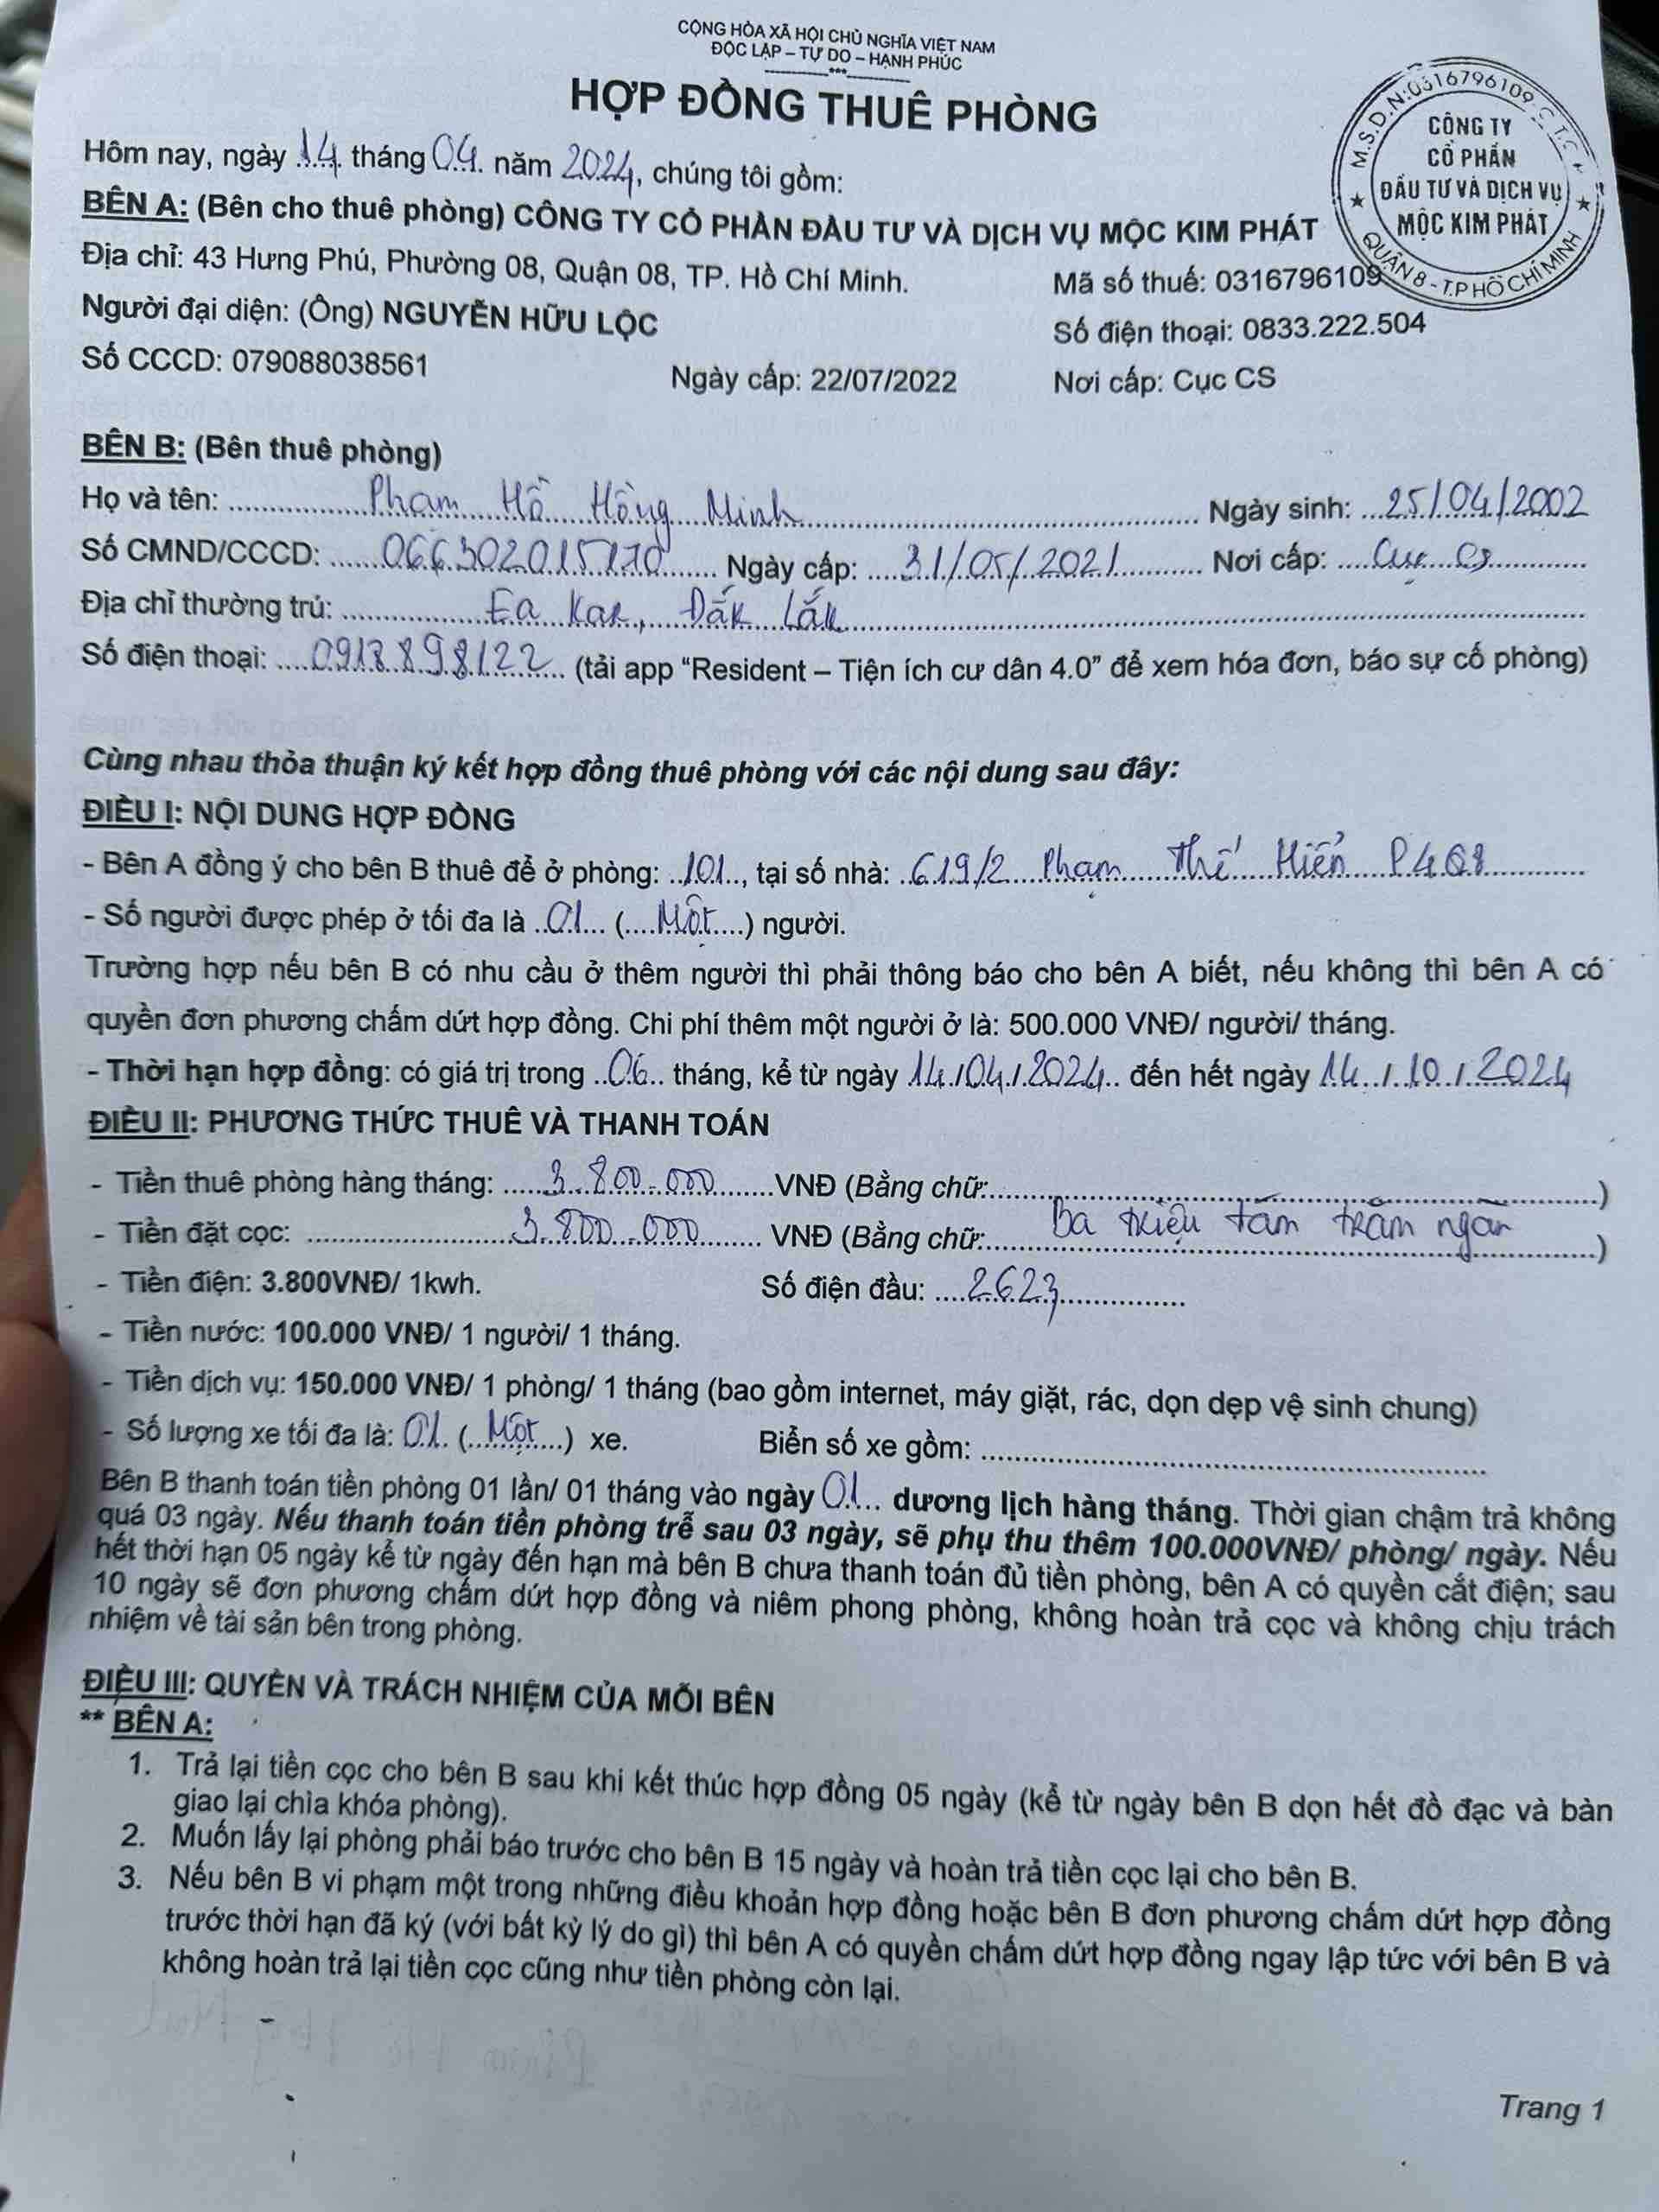 CỘNG HÒA XÃ HỘI CHỦ NGHĨA VIỆT NAM
ĐỘC LẬP – TỰ DO – HẠNH PHÚC
***
HỢP ĐỒNG THUÊ PHÒNG
M.S.D.N:0316796109-C.T.C
CÔNG TY
CỔ PHẦN
ĐẦU TƯ VÀ DỊCH VỤ
MỘC KIM PHÁT
QUẬN 8 - T.P HỒ CHÍ MINH
Hôm nay, ngày 14 tháng 04 năm 2024, chúng tôi gồm:
BÊN A: (Bên cho thuê phòng) CÔNG TY CỔ PHẦN ĐẦU TƯ VÀ DỊCH VỤ MỘC KIM PHÁT
Địa chỉ: 43 Hưng Phú, Phường 08, Quận 08, TP. Hồ Chí Minh. Mã số thuế: 0316796109
Người đại diện: (Ông) NGUYỄN HỮU LỘC Số điện thoại: 0833.222.504
Số CCCD: 079088038561 Ngày cấp: 22/07/2022 Nơi cấp: Cục CS
BÊN B: (Bên thuê phòng)
Họ và tên: Phạm Hồ Hồng Minh Ngày sinh: 25/04/2002
Số CMND/CCCD: 066302015170 Ngày cấp: 31/05/2021 Nơi cấp: Cục CS
Địa chỉ thường trú: Ea Kar, Đắk Lắk
Số điện thoại: 0918898122 (tải app “Resident – Tiện ích cư dân 4.0” để xem hóa đơn, báo sự cố phòng)
Cùng nhau thỏa thuận ký kết hợp đồng thuê phòng với các nội dung sau đây:
ĐIỀU I: NỘI DUNG HỢP ĐỒNG
- Bên A đồng ý cho bên B thuê để ở phòng: 101, tại số nhà: 619/2 Phạm Thế Hiển P4Q8
- Số người được phép ở tối đa là 01 (Một) người.
Trường hợp nếu bên B có nhu cầu ở thêm người thì phải thông báo cho bên A biết, nếu không thì bên A có
quyền đơn phương chấm dứt hợp đồng. Chi phí thêm một người ở là: 500.000 VNĐ/ người/ tháng.
- Thời hạn hợp đồng: có giá trị trong 06 tháng, kể từ ngày 14/04/2024 đến hết ngày 14/10/2024
ĐIỀU II: PHƯƠNG THỨC THUÊ VÀ THANH TOÁN
- Tiền thuê phòng hàng tháng: 3.800.000 VNĐ (Bằng chữ: )
- Tiền đặt cọc: 3.800.000 VNĐ (Bằng chữ: Ba triệu tám trăm ngàn )
- Tiền điện: 3.800VNĐ/ 1kwh. Số điện đầu: 2623
- Tiền nước: 100.000 VNĐ/ 1 người/ 1 tháng.
- Tiền dịch vụ: 150.000 VNĐ/ 1 phòng/ 1 tháng (bao gồm internet, máy giặt, rác, dọn dẹp vệ sinh chung)
- Số lượng xe tối đa là: 01 (Một) xe. Biển số xe gồm:
Bên B thanh toán tiền phòng 01 lần/ 01 tháng vào ngày 01 dương lịch hàng tháng. Thời gian chậm trả không
quá 03 ngày. Nếu thanh toán tiền phòng trễ sau 03 ngày, sẽ phụ thu thêm 100.000VNĐ/ phòng/ ngày. Nếu
hết thời hạn 05 ngày kể từ ngày đến hạn mà bên B chưa thanh toán đủ tiền phòng, bên A có quyền cắt điện; sau
10 ngày sẽ đơn phương chấm dứt hợp đồng và niêm phong phòng, không hoàn trả cọc và không chịu trách
nhiệm về tài sản bên trong phòng.
ĐIỀU III: QUYỀN VÀ TRÁCH NHIỆM CỦA MỖI BÊN
** BÊN A:
1. Trả lại tiền cọc cho bên B sau khi kết thúc hợp đồng 05 ngày (kể từ ngày bên B dọn hết đồ đạc và bàn
giao lại chìa khóa phòng).
2. Muốn lấy lại phòng phải báo trước cho bên B 15 ngày và hoàn trả tiền cọc lại cho bên B.
3. Nếu bên B vi phạm một trong những điều khoản hợp đồng hoặc bên B đơn phương chấm dứt hợp đồng
trước thời hạn đã ký (với bất kỳ lý do gì) thì bên A có quyền chấm dứt hợp đồng ngay lập tức với bên B và
không hoàn trả lại tiền cọc cũng như tiền phòng còn lại.
Trang 1